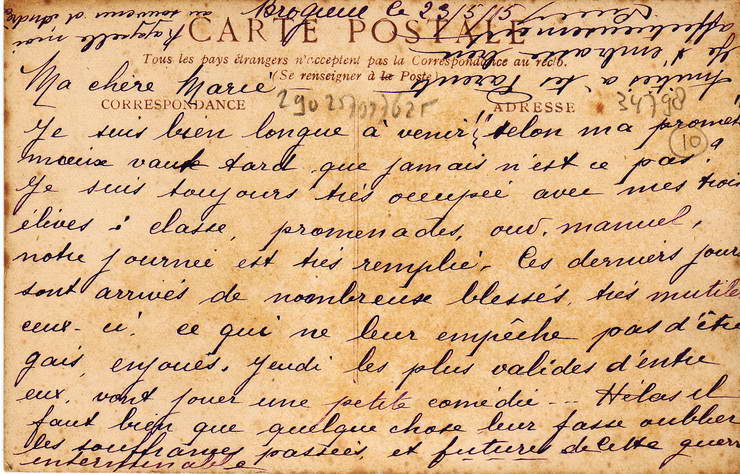 le 23/5/15
CARTE POSTALE
Tous les pays étrangers n'acceptent pas la Correspondance au recto.
(Se renseigner à la Poste)
Ma chère Marie
CORRESPONDANCE
ADRESSE
34798
10
Je suis bien longue à venir!! selon ma promet
mieux vaut tard que jamais n'est ce pas?
Je suis toujours très occupée avec mes trois
élives : classe, promenades, ouv. manuel,
notre journée est très remplie. Ces derniers jours
sont arrivés de nombreux blessés, très mutilés
ceux-ci, ce qui ne leur empêche pas d'être
gais, enjoués. Jeudi les plus valides d'entre
eux, vont jouer une petite comédie... Hélas il
faut bien que quelque chose leur fasse oublier
les souffrances passées, et futures de cette guerre
interminable
Amitiés à tes Parents
Je t'embrasse bien
affectueusement
Rappelle moi
au souvenir d'André